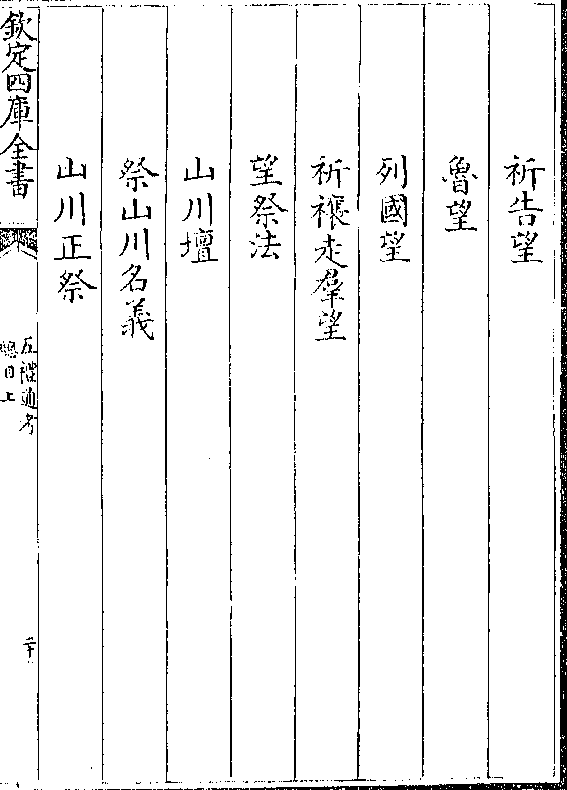 祈告望
魯望
列國望
祈禳走羣望
望祭法
山川壇
祭山川名義
山川正祭
欽定四庫全書
五禮通考
總目上
二十